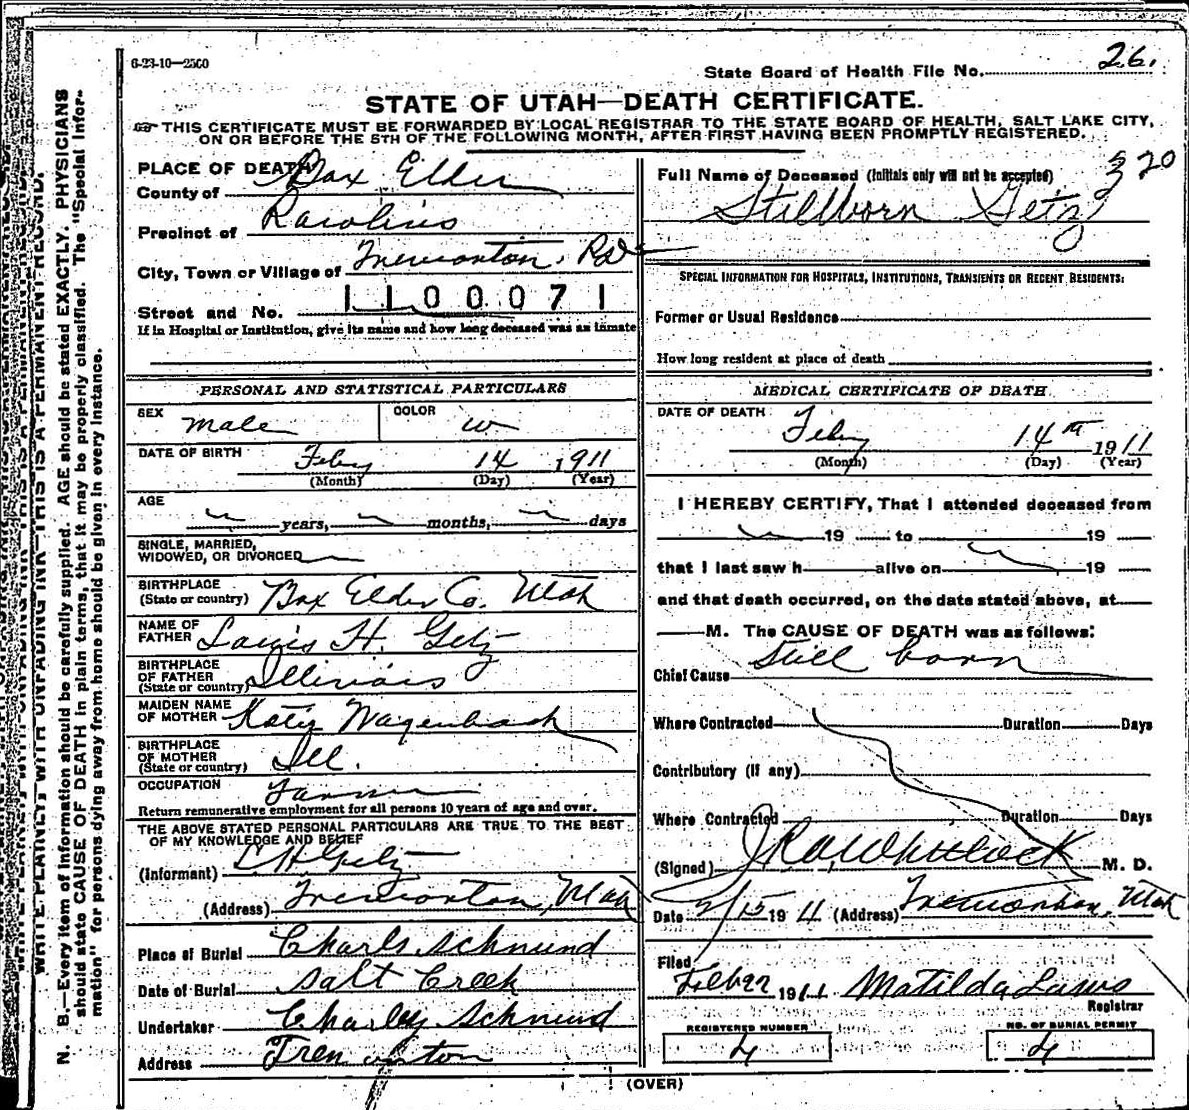 6-23-10—2500
State Board of Health File No. 26.
STATE OF UTAH—DEATH CERTIFICATE.
THIS CERTIFICATE MUST BE FORWARDED BY LOCAL REGISTRAR TO THE STATE BOARD OF HEALTH, SALT LAKE CITY,
ON OR BEFORE THE 5TH OF THE FOLLOWING MONTH, AFTER FIRST HAVING BEEN PROMPTLY REGISTERED.
N. B.—Every item of information should be carefully supplied. AGE should be stated EXACTLY. PHYSICIANS
should state CAUSE OF DEATH in plain terms, that it may be properly classified. The "Special Infor-
mation" for persons dying away from home should be given in every instance.
WRITE PLAINLY WITH UNFADING INK—THIS IS A PERMANENT RECORD.
PLACE OF DEATH
County of Box Elder
Precinct of
City, Town or Village of Tremonton,
Street and No. 1100071
If in Hospital or Institution, give its name and how long deceased was an inmate
320
Full Name of Deceased (Initials only will not be accepted)
Stillborn Getz
SPECIAL INFORMATION FOR HOSPITALS, INSTITUTIONS, TRANSIENTS OR RECENT RESIDENTS:
Former or Usual Residence
How long resident at place of death
PERSONAL AND STATISTICAL PARTICULARS
SEX male COLOR w
DATE OF BIRTH Feby 14 1911
(Month) (Day) (Year)
AGE
years, months, days
SINGLE, MARRIED,
WIDOWED, OR DIVORCED
BIRTHPLACE
(State or country) Box Elder Co. Utah
NAME OF
FATHER Louis H. Getz
BIRTHPLACE
OF FATHER
(State or country) Illinois
MAIDEN NAME
OF MOTHER Katie Wagenbach
BIRTHPLACE
OF MOTHER
(State or country) Ill.
OCCUPATION Farmer
Return remunerative employment for all persons 10 years of age and over.
THE ABOVE STATED PERSONAL PARTICULARS ARE TRUE TO THE BEST
OF MY KNOWLEDGE AND BELIEF
(Informant) L H Getz
(Address) Tremonton, Utah
Place of Burial Charls Schnund
Date of Burial Salt Creek
Undertaker Charley Schnund
Address Tremonton
MEDICAL CERTIFICATE OF DEATH
DATE OF DEATH Feby 14th 1911
(Month) (Day) (Year)
I HEREBY CERTIFY, That I attended deceased from
19 to 19
that I last saw h alive on 19
and that death occurred, on the date stated above, at
M. The CAUSE OF DEATH was as follows:
Chief Cause Still born
Where Contracted Duration Days
Contributory (if any)
Where Contracted Duration Days
(Signed) Whitlock M. D.
Date 2/15 1911 (Address) Tremonton, Utah
Filed
1911 Matilda Laws
Registrar
REGISTERED NUMBER
4
NO. OF BURIAL PERMIT
4
(OVER)